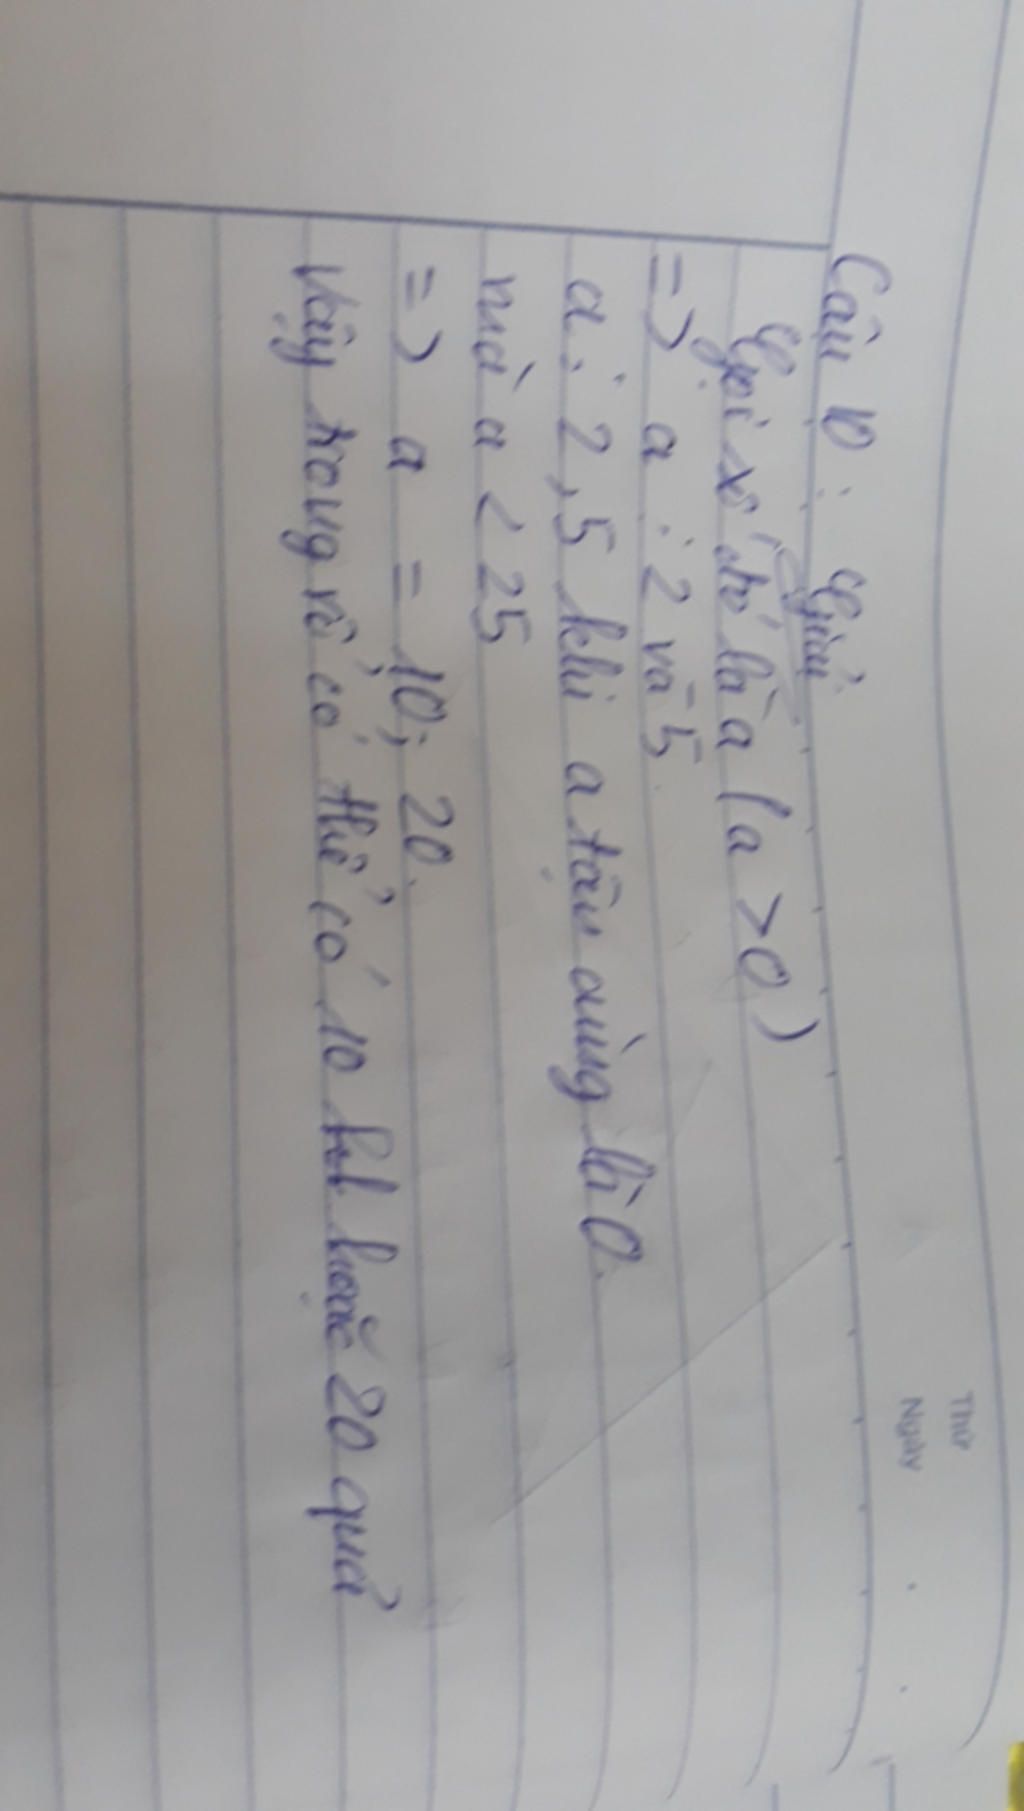 Thứ
Ngày
Câu 10 : Giải
Gọi số đó là a (a > 0)
=> a : 2 và 5
a ⋮ 2, 5 khi a tận cùng là 0.
mà a < 25
=> a = 10; 20.
Vậy trong rổ có thể có 10 hoặc 20 quả